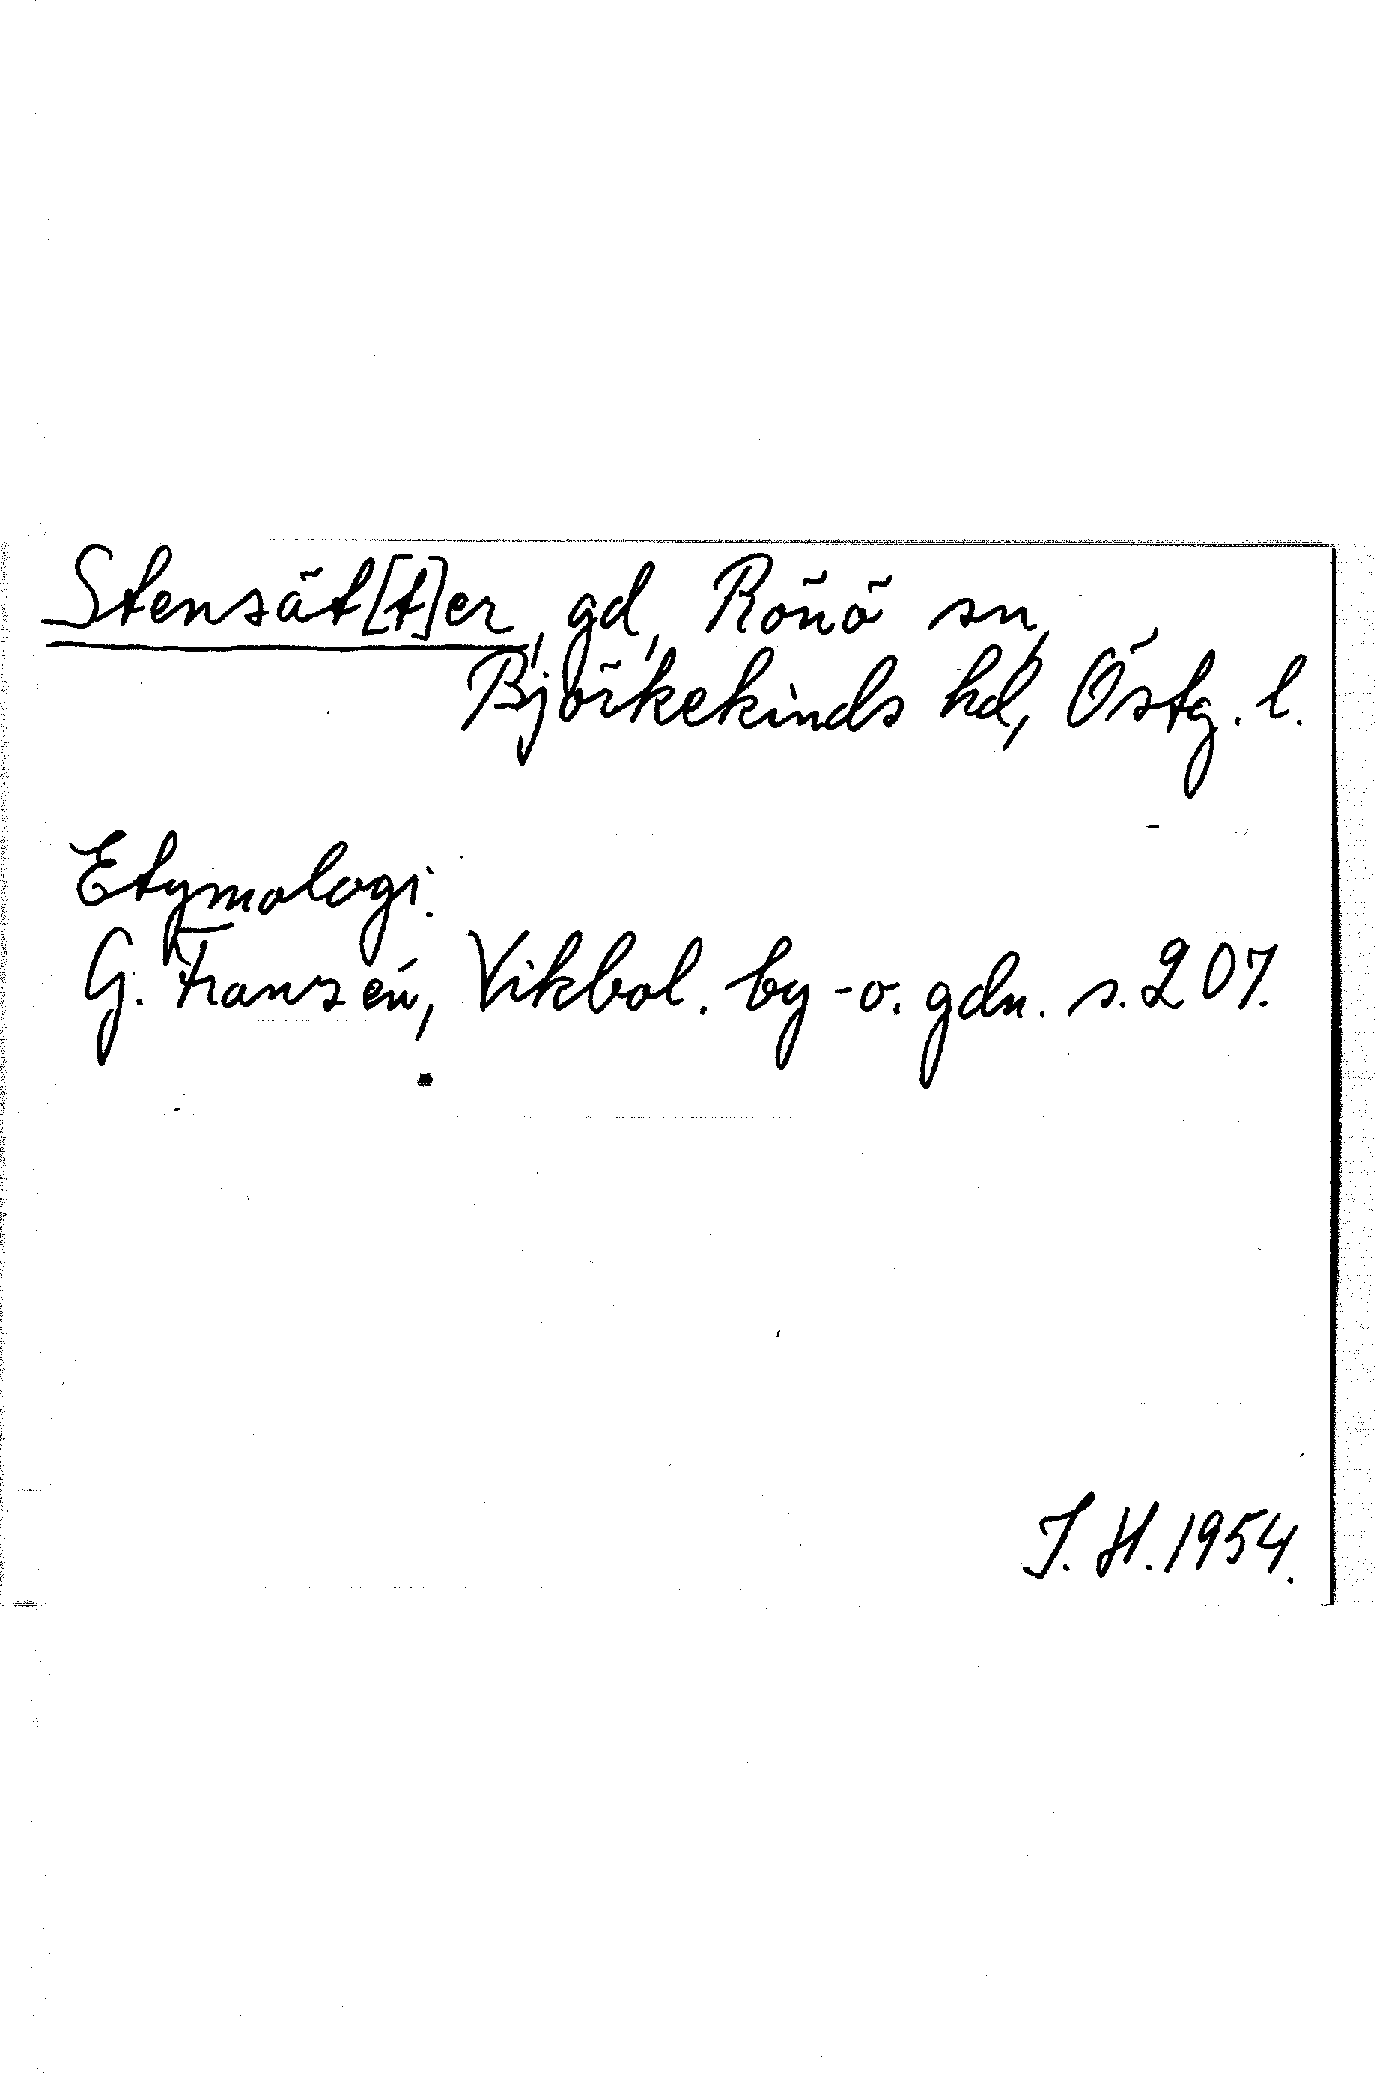 Stensät[t]er, gd, Rönö sn,
Björkekinds hd, Östg. l.
Etymologi.
G. Franzén, Vikbol. by -o. gdn. s. 207.
I. H. 1954.